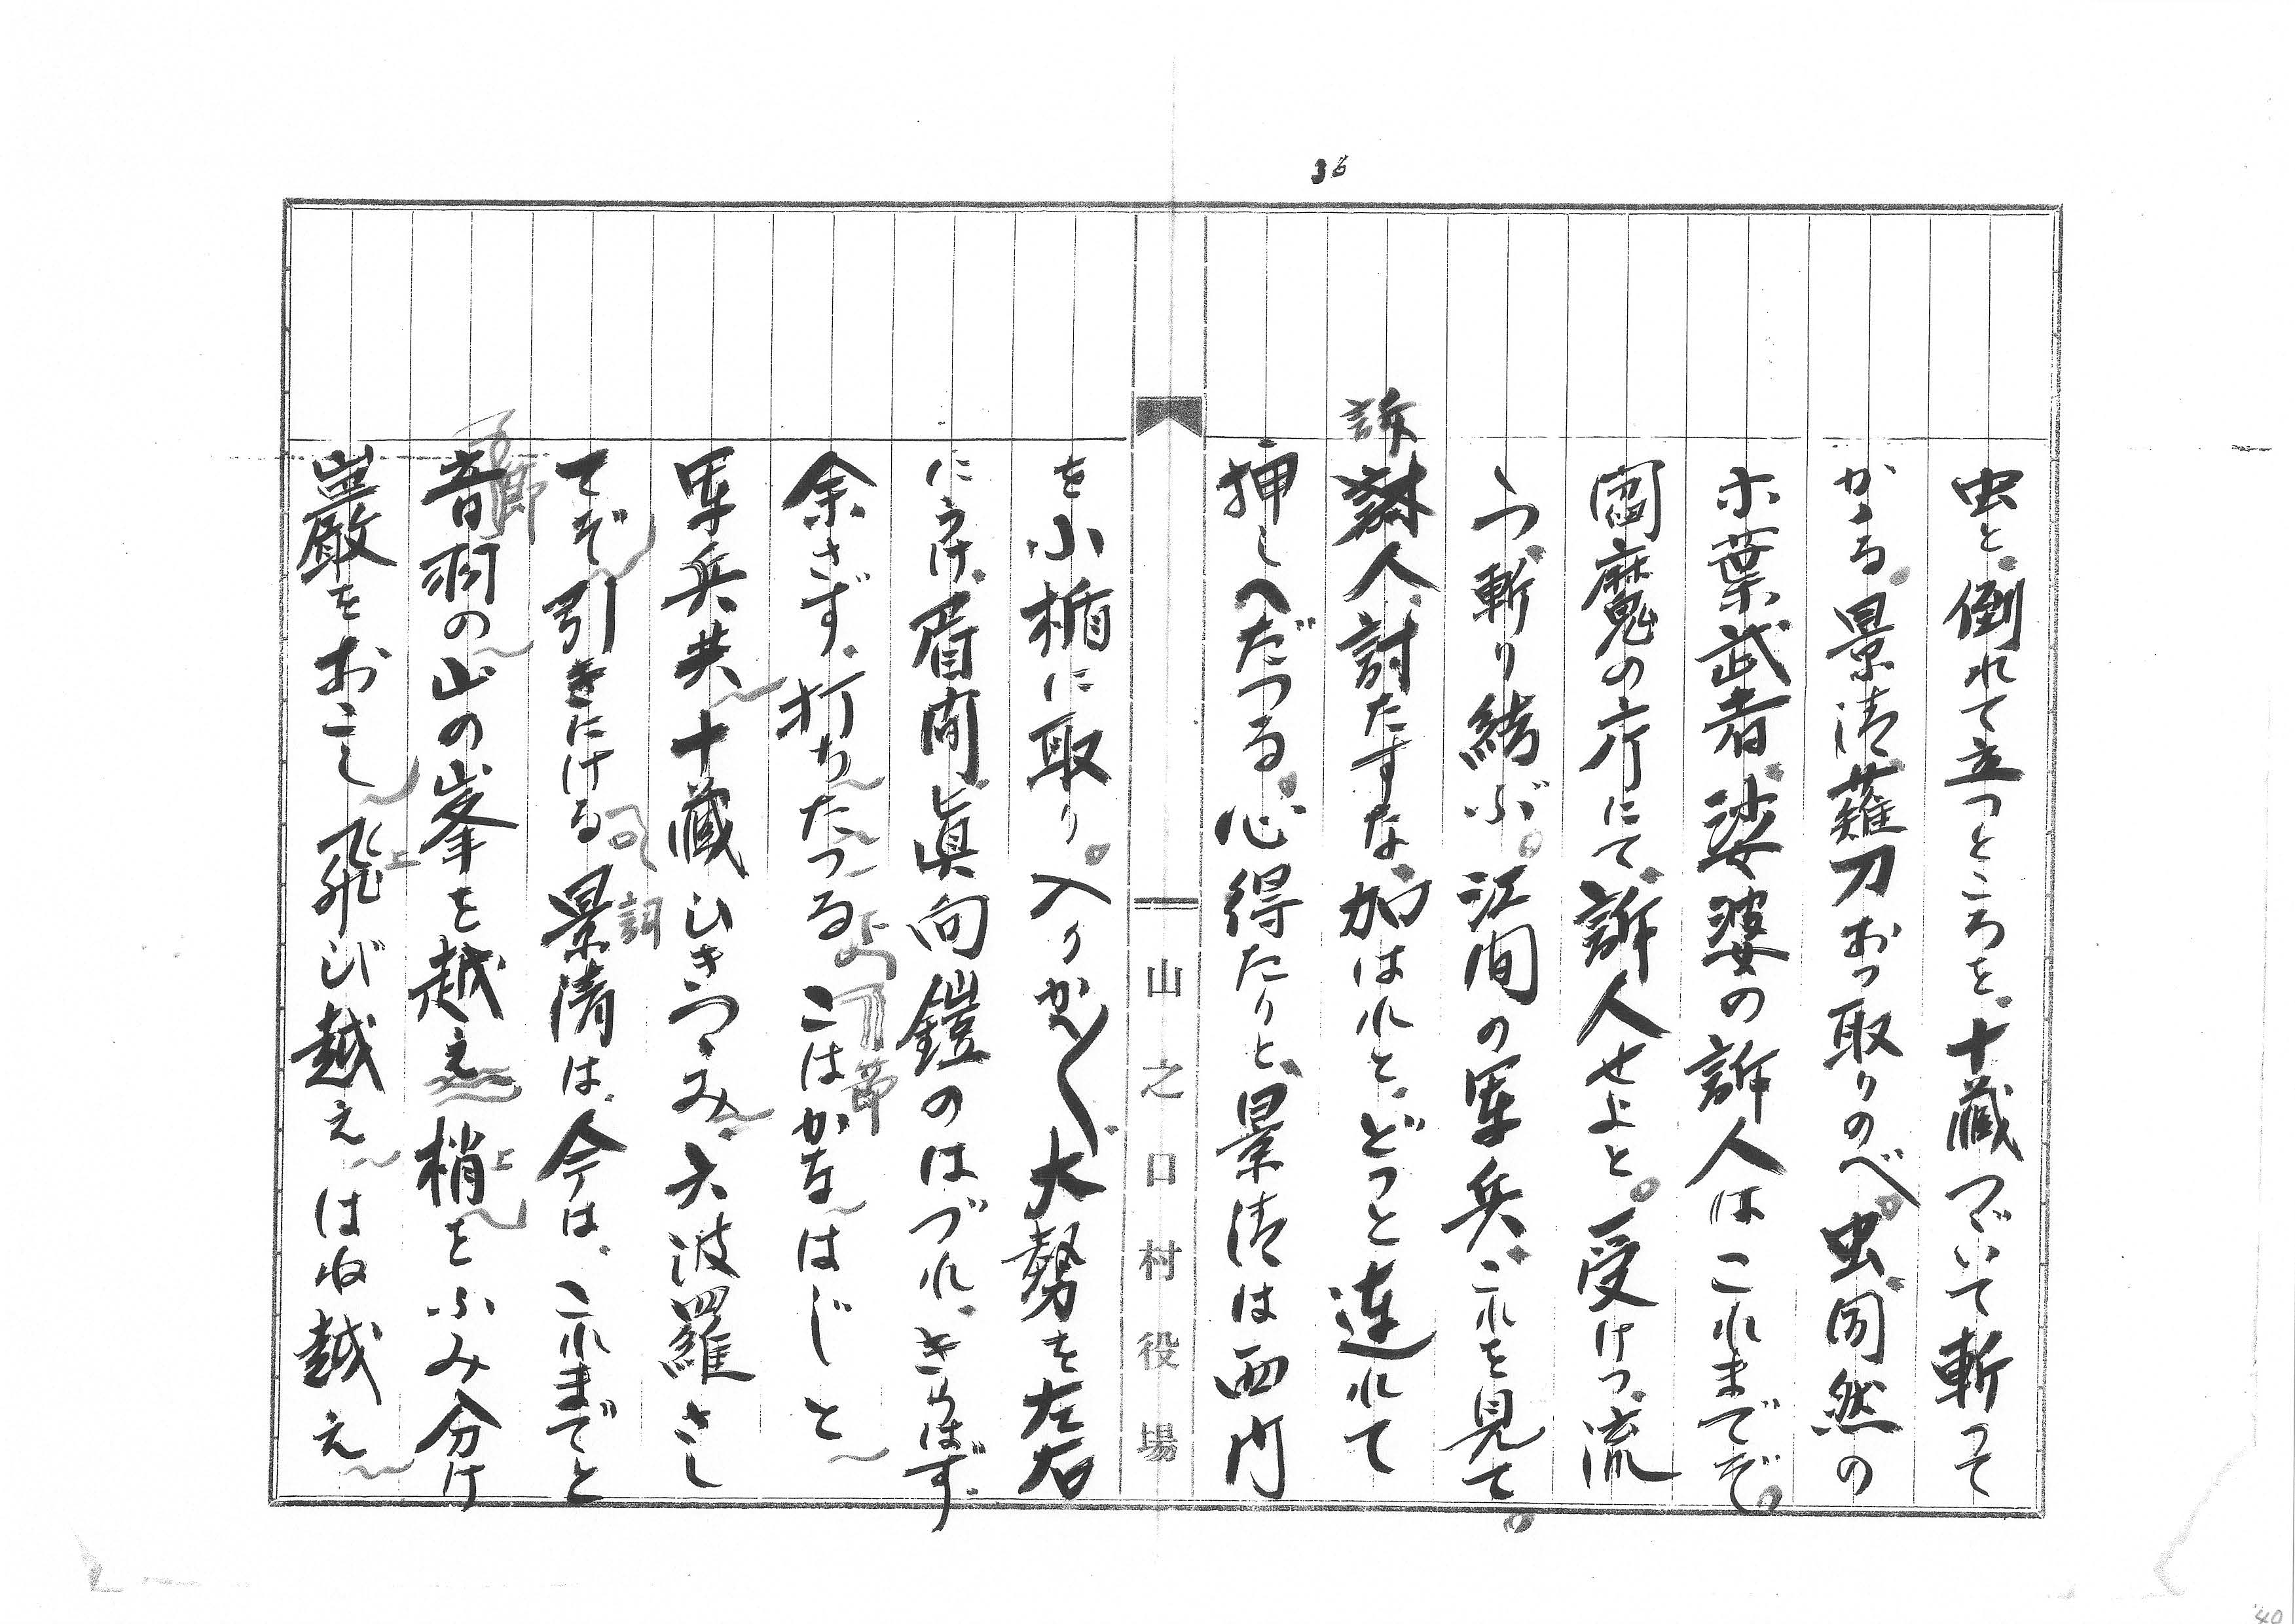 36
虫と、倒れて立つところを、十蔵つゞいて斬って
かゝる。景清、薙刀おっ取りのべ。虫、同然の
木葉武者、娑婆の訴人はこれまでぞ。
閻魔の庁にて、訴人せよと。受けつ、流
しつ、斬り結ぶ。江間の軍兵、これを見て。
訴
人、討たすな、加はれと、どっと連れて
押しへだつる。心得たりと、景清は西門
を小楯に取り。入りかへ〱、大勢を左右
にうけ、眉間、眞向、鎧のはづれ、きらはず、
余さず、打ちたつる こはかなはじと
軍兵共 十蔵ひきつゝみ、六波羅さし
てぞ引きにける 景清は、今は、これまでと
詞
音羽の山の峯を越え 梢をふみ分け
上
巌をおこし 飛び越え はね越え
上
山之口村役場
40